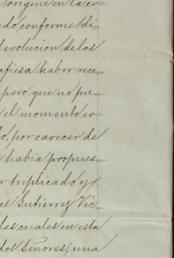 origine en la co-
do conforme di
devolucion de las
afiesa haber rece-
pero que no pu-
el momento co-
o, por carecer de
habia propues-
r triplicado y
es Gutierrez Vic-
las cuales en esta
dos Señores, una